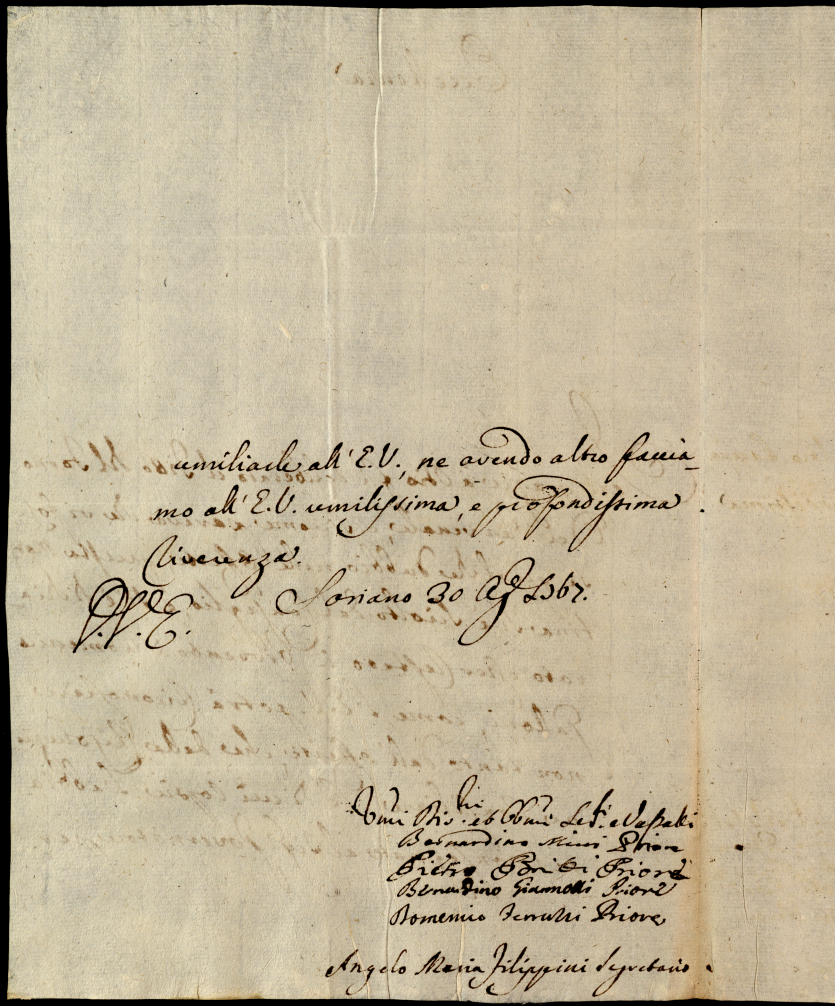 umiliarle all' E.V., ne avendo altro faccia_
mo all' E.V. umilissima, e profondissima
riverenza.
Soriano 30 Agto 1767.
D. V. E.
Umi Div.mi et Obbmi Ser.i e Vassalli
Bernardino Priore
Pietro Priore
Bernardino Giannotti Priore
Domenico Ferruzzi Priore
Angelo Maria Filippini Segretario